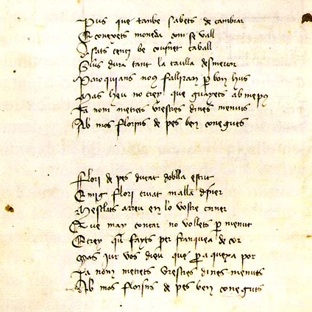 Pus que tanbe sabets de cambiar
E conexets moneda com se vall
Asats cenyi be cuyner taball
Sius dura tant la taulla de mercar
Paroquians nous falliran per bon hus
Mas heu no crey que guanyets ab me pus
Ja nom metrets vrestres dines menuts
Ab mos florins de pes ben coneguts
Flori de pes ducat dobla escut
E mig flori croat malla diner
Mesclats areu en lo vostre carner
E ue may contar no vollets per menut
E crey qu fayts per franquea de cor
Mas jur vos deu que per aqueza por
Ja nom metrets vrestres dines menuts
Ab mos florins de pes ben coneguts